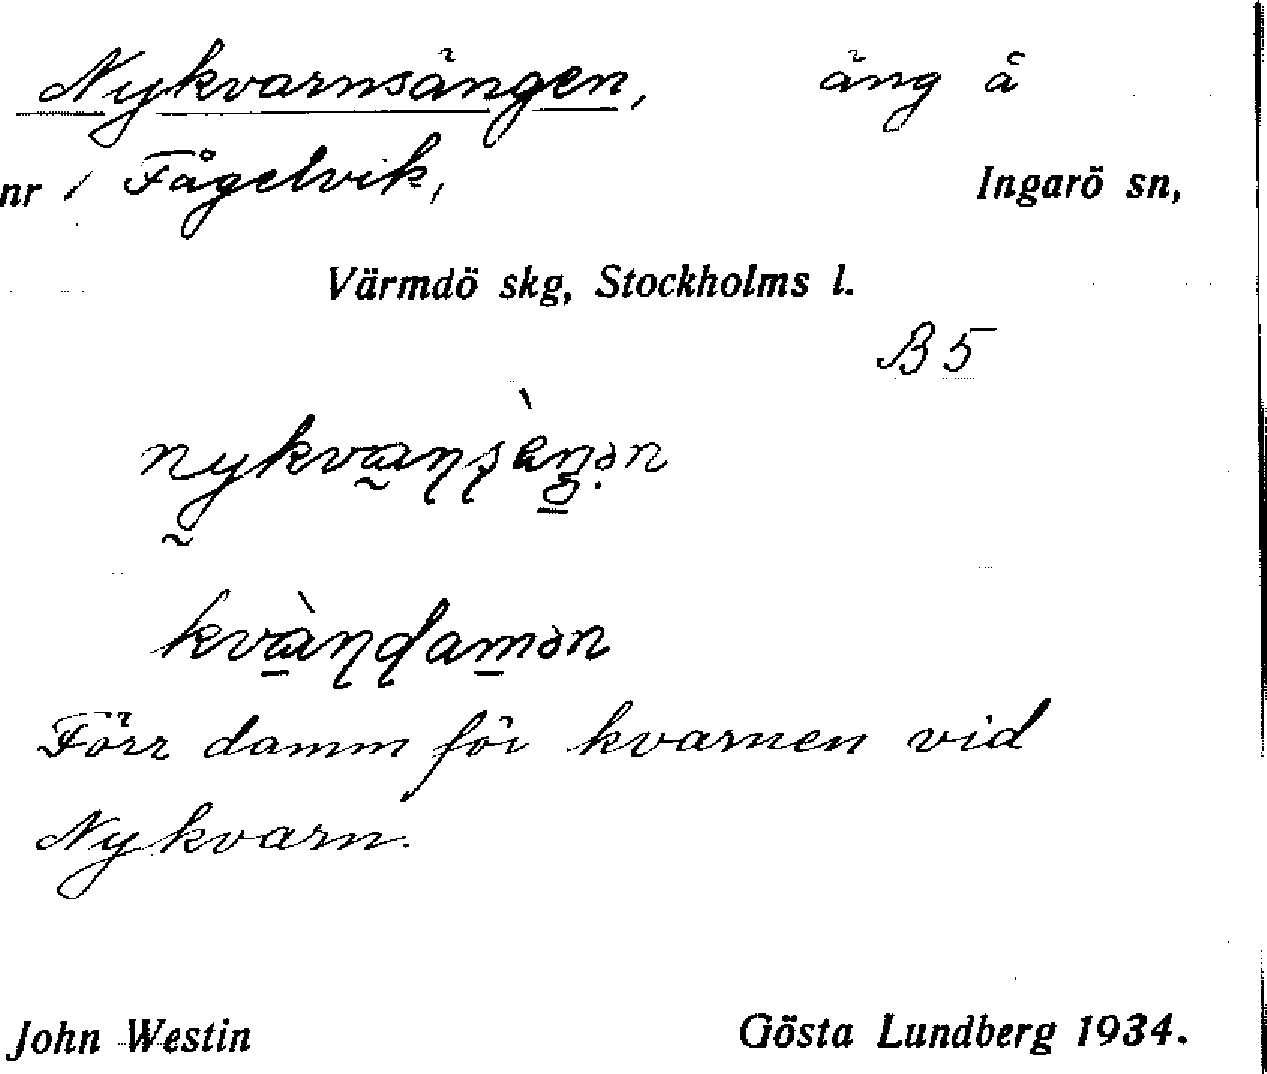 Nykvarnsängen, äng å
nr 1 Fågelvik, Ingarö sn,
Värmdö skg, Stockholms l.
B5
Förr damm för kvarnen vid
Nykvarn.
John Westin Gösta Lundberg 1934.